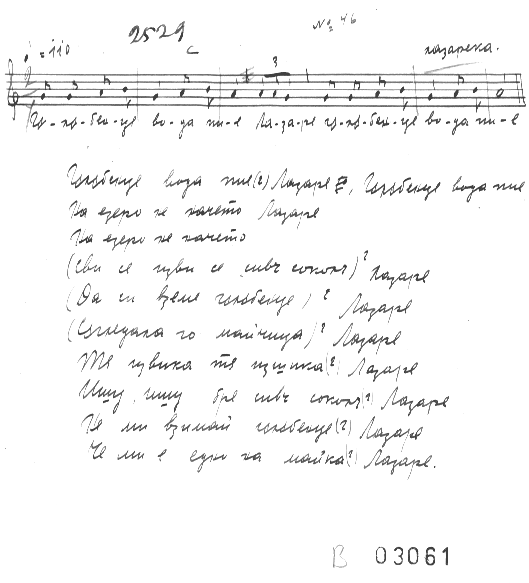 № 46
2529
♩ = 110
C
лазарска.
3
Гъ-лъ-бен-це во-да пи-е Ла-за-ре гъ-лъ-бен-це во-да пи-е
Гълъбенце вода пие (2) Лазаре, Гълъбенце вода пие
На езеро на качето Лазаре
На езеро на качето
(Сви се изви се сивъ соколъ)² Лазаре
(Да си вземе гълъбенце)² Лазаре
го майчица)² Лазаре
Тя извика тя (2) Лазаре
Ишу, ишу бре сивъ соколъ (2) Лазаре
Не ми взимай гълъбенце (2) Лазаре
Че ми е едро на майка (2) Лазаре.
B 03061